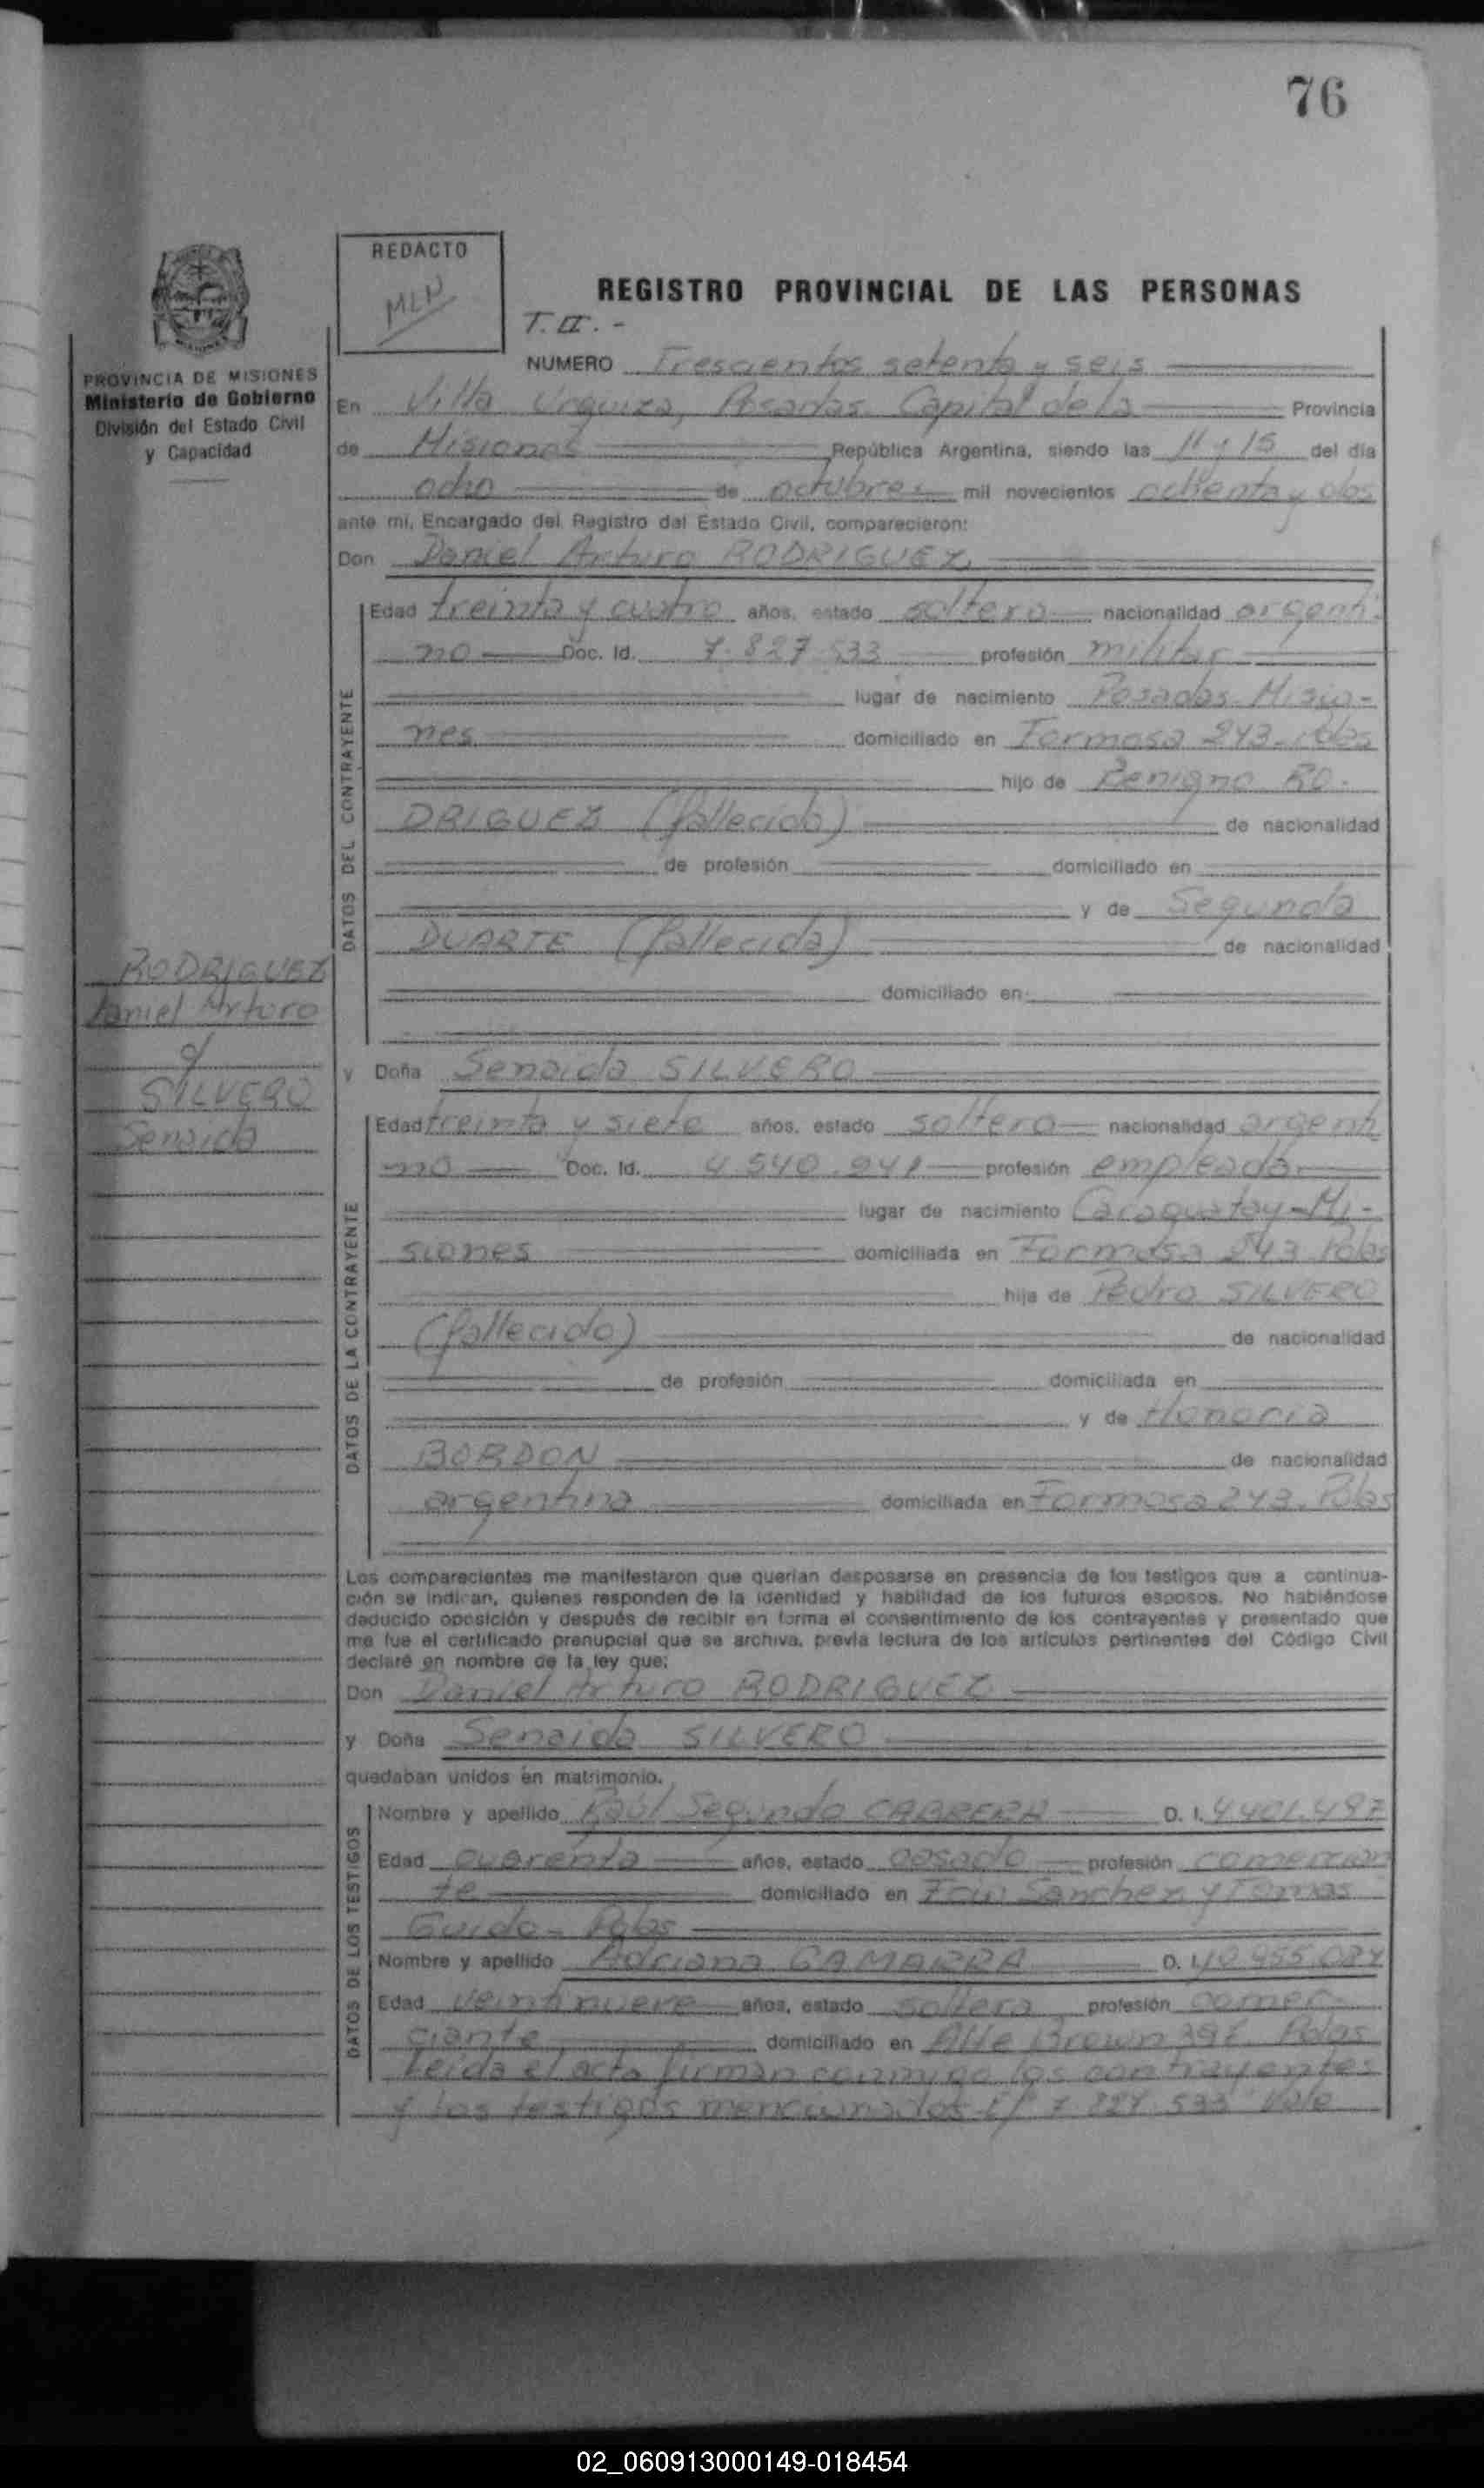 76
REDACTO
MLN
REGISTRO PROVINCIAL DE LAS PERSONAS
T. II. -
PROVINCIA DE MISIONES
Ministerio de Gobierno
División del Estado Civil
y Capacidad
NUMERO Trescientos setenta y seis
En Villa Urquiza, Posadas Capital de la Provincia
de Misiones República Argentina, siendo las 11 y 15 del día
ocho de octubre mil novecientos ochenta y dos
ante mí, Encargado del Registro del Estado Civil, comparecieron:
Don Daniel Arturo RODRIGUEZ
DATOS DEL CONTRAYENTE
Edad treinta y cuatro años, estado soltero nacionalidad argenti-
no Doc. Id. 7.827.533 profesión militar
lugar de nacimiento Posadas-Misio-
nes domiciliado en Formosa 243-Pdas
hijo de Benigno RO-
DRIGUEZ (fallecido) de nacionalidad
de profesión domiciliado en
y de Segunda
DUARTE (fallecida) de nacionalidad
domiciliado en
RODRIGUEZ
Daniel Arturo
c/
SILVERO
Senaida
y Doña Senaida SILVERO
DATOS DE LA CONTRAYENTE
Edad treinta y siete años, estado soltera nacionalidad argenti
no Doc. Id. 4.540.241 profesión empleada
lugar de nacimiento Caraguatay-Mi-
siones domiciliada en Formosa 243 Pdas
hija de Pedro SILVERO
(fallecido) de nacionalidad
de profesión domiciliada en
y de Honoria
BORDON de nacionalidad
argentina domiciliada en Formosa 243. Pdas
Los comparecientes me manifestaron que querían desposarse en presencia de los testigos que a continua-
ción se indican, quienes responden de la identidad y habilidad de los futuros esposos. No habiéndose
deducido oposición y después de recibir en forma el consentimiento de los contrayentes y presentado que
me fue el certificado prenupcial que se archiva, previa lectura de los artículos pertinentes del Código Civil
declaré en nombre de la ley que:
Don Daniel Arturo RODRIGUEZ
y Doña Senaida SILVERO
quedaban unidos en matrimonio.
DATOS DE LOS TESTIGOS
Nombre y apellido Raúl Segundo CABRERA D. I. 4.401.497
Edad cuarenta años, estado casado profesión comercian
te domiciliado en Sanchez y Tomas
Guido- Pdas
Nombre y apellido Adriana GAMARRA D. I. 10.955.084
Edad veintinueve años, estado soltera profesión comer-
ciante domiciliado en Alte Brown 397 Pdas
Leída el acta firman conmigo los contrayentes
y los testigos mencionados E/ 7.827.533 Vale
02_060913000149-018454